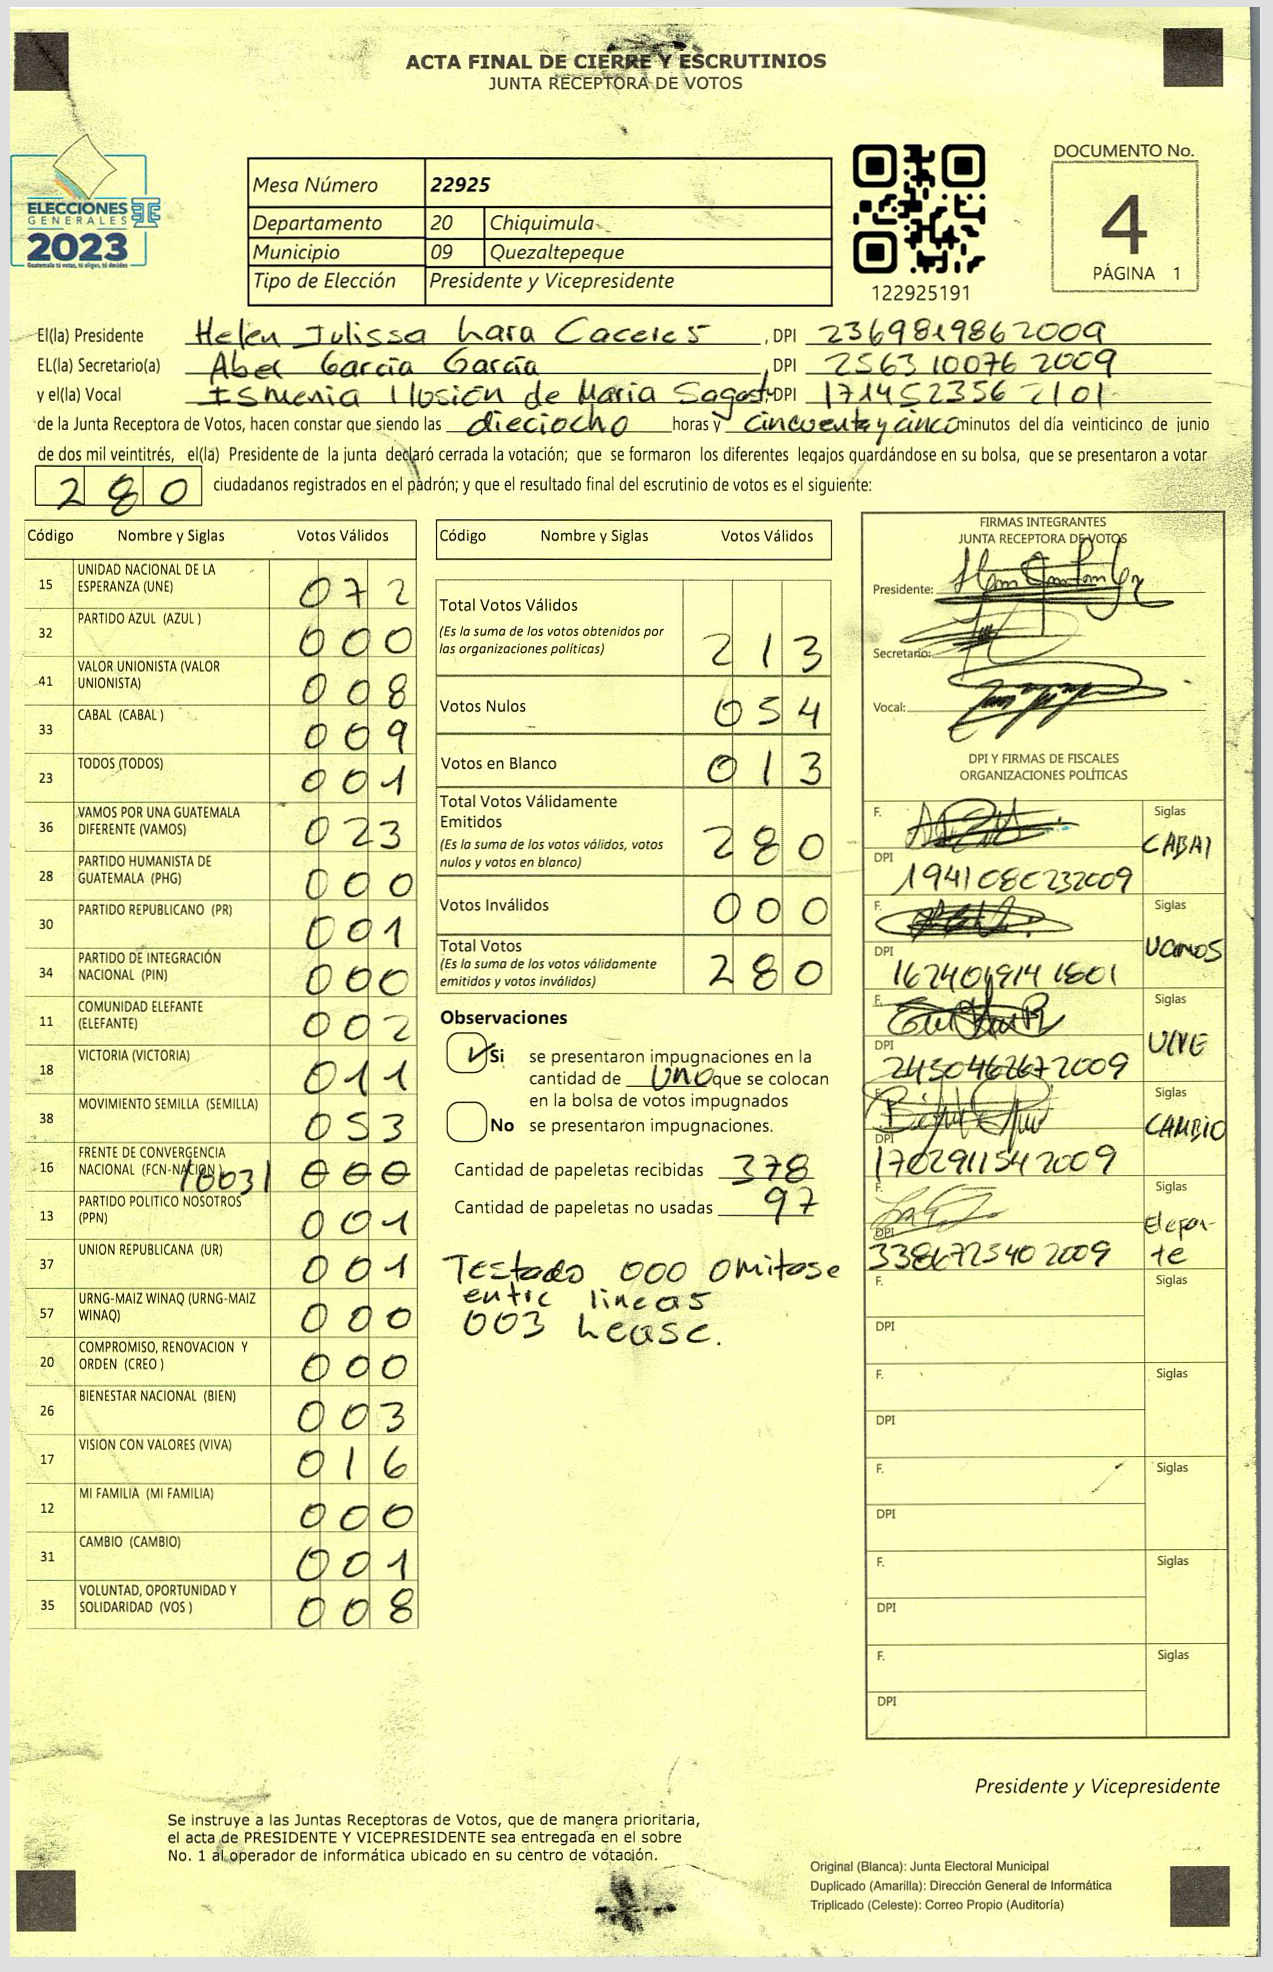 ACTA FINAL DE CIERRE Y ESCRUTINIOS
JUNTA RECEPTORA DE VOTOS
ELECCIONES
GENERALES
2023
Guatemala tú votas, tú eliges, tú decides
Mesa Número 22925
Departamento 20 Chiquimula
Municipio 09 Quezaltepeque
Tipo de Elección Presidente y Vicepresidente
122925191
DOCUMENTO No.
4
PÁGINA 1
El(la) Presidente Helen Julissa Lara Caceres, DPI 2369819862009
EL(la) Secretario(a) Abel García García, DPI 2563100762009
y el(la) Vocal Ismenia Ilusión de Maria Sagast, DPI 1714523562101
de la Junta Receptora de Votos, hacen constar que siendo las dieciocho horas y cincuenta y cinco minutos del día veinticinco de junio
de dos mil veintitrés, el(la) Presidente de la junta declaró cerrada la votación; que se formaron los diferentes legajos guardándose en su bolsa, que se presentaron a votar
280 ciudadanos registrados en el padrón; y que el resultado final del escrutinio de votos es el siguiente:
Código Nombre y Siglas Votos Válidos
15 UNIDAD NACIONAL DE LA ESPERANZA (UNE) 072
32 PARTIDO AZUL (AZUL ) 000
41 VALOR UNIONISTA (VALOR UNIONISTA) 008
33 CABAL (CABAL ) 009
23 TODOS (TODOS) 001
36 VAMOS POR UNA GUATEMALA DIFERENTE (VAMOS) 023
28 PARTIDO HUMANISTA DE GUATEMALA (PHG) 000
30 PARTIDO REPUBLICANO (PR) 001
34 PARTIDO DE INTEGRACIÓN NACIONAL (PIN) 000
11 COMUNIDAD ELEFANTE (ELEFANTE) 002
18 VICTORIA (VICTORIA) 011
38 MOVIMIENTO SEMILLA (SEMILLA) 053
16 FRENTE DE CONVERGENCIA NACIONAL (FCN-NACION ) /003/ 000
13 PARTIDO POLITICO NOSOTROS (PPN) 001
37 UNION REPUBLICANA (UR) 001
57 URNG-MAIZ WINAQ (URNG-MAIZ WINAQ) 000
20 COMPROMISO, RENOVACION Y ORDEN (CREO ) 000
26 BIENESTAR NACIONAL (BIEN) 003
17 VISION CON VALORES (VIVA) 016
12 MI FAMILIA (MI FAMILIA) 000
31 CAMBIO (CAMBIO) 001
35 VOLUNTAD, OPORTUNIDAD Y SOLIDARIDAD (VOS ) 008
Código Nombre y Siglas Votos Válidos
Total Votos Válidos
(Es la suma de los votos obtenidos por
las organizaciones políticas) 213
Votos Nulos 054
Votos en Blanco 013
Total Votos Válidamente
Emitidos
(Es la suma de los votos válidos, votos
nulos y votos en blanco) 280
Votos Inválidos 000
Total Votos
(Es la suma de los votos válidamente
emitidos y votos inválidos) 280
Observaciones
Si se presentaron impugnaciones en la
cantidad de uno que se colocan
en la bolsa de votos impugnados
No se presentaron impugnaciones.
Cantidad de papeletas recibidas 378
Cantidad de papeletas no usadas 97
Testado 000 omitase
entre lineas
003 Lease.
FIRMAS INTEGRANTES
JUNTA RECEPTORA DE VOTOS
Presidente:
Secretario:
Vocal:
DPI Y FIRMAS DE FISCALES
ORGANIZACIONES POLÍTICAS
F. Siglas
CABAL
DPI 1941080232009
F. Siglas
VAMOS
DPI
F. Siglas
UNE
DPI 2450462672009
F. Siglas
CAMBIO
DPI 1702911542009
F. Siglas
Elefan-
te
DPI 3386725402009
F. Siglas
DPI
F. Siglas
DPI
F. Siglas
DPI
F. Siglas
DPI
F. Siglas
DPI
Presidente y Vicepresidente
Se instruye a las Juntas Receptoras de Votos, que de manera prioritaria,
el acta de PRESIDENTE Y VICEPRESIDENTE sea entregada en el sobre
No. 1 al operador de informática ubicado en su centro de votación.
Original (Blanca): Junta Electoral Municipal
Duplicado (Amarilla): Dirección General de Informática
Triplicado (Celeste): Correo Propio (Auditoría)